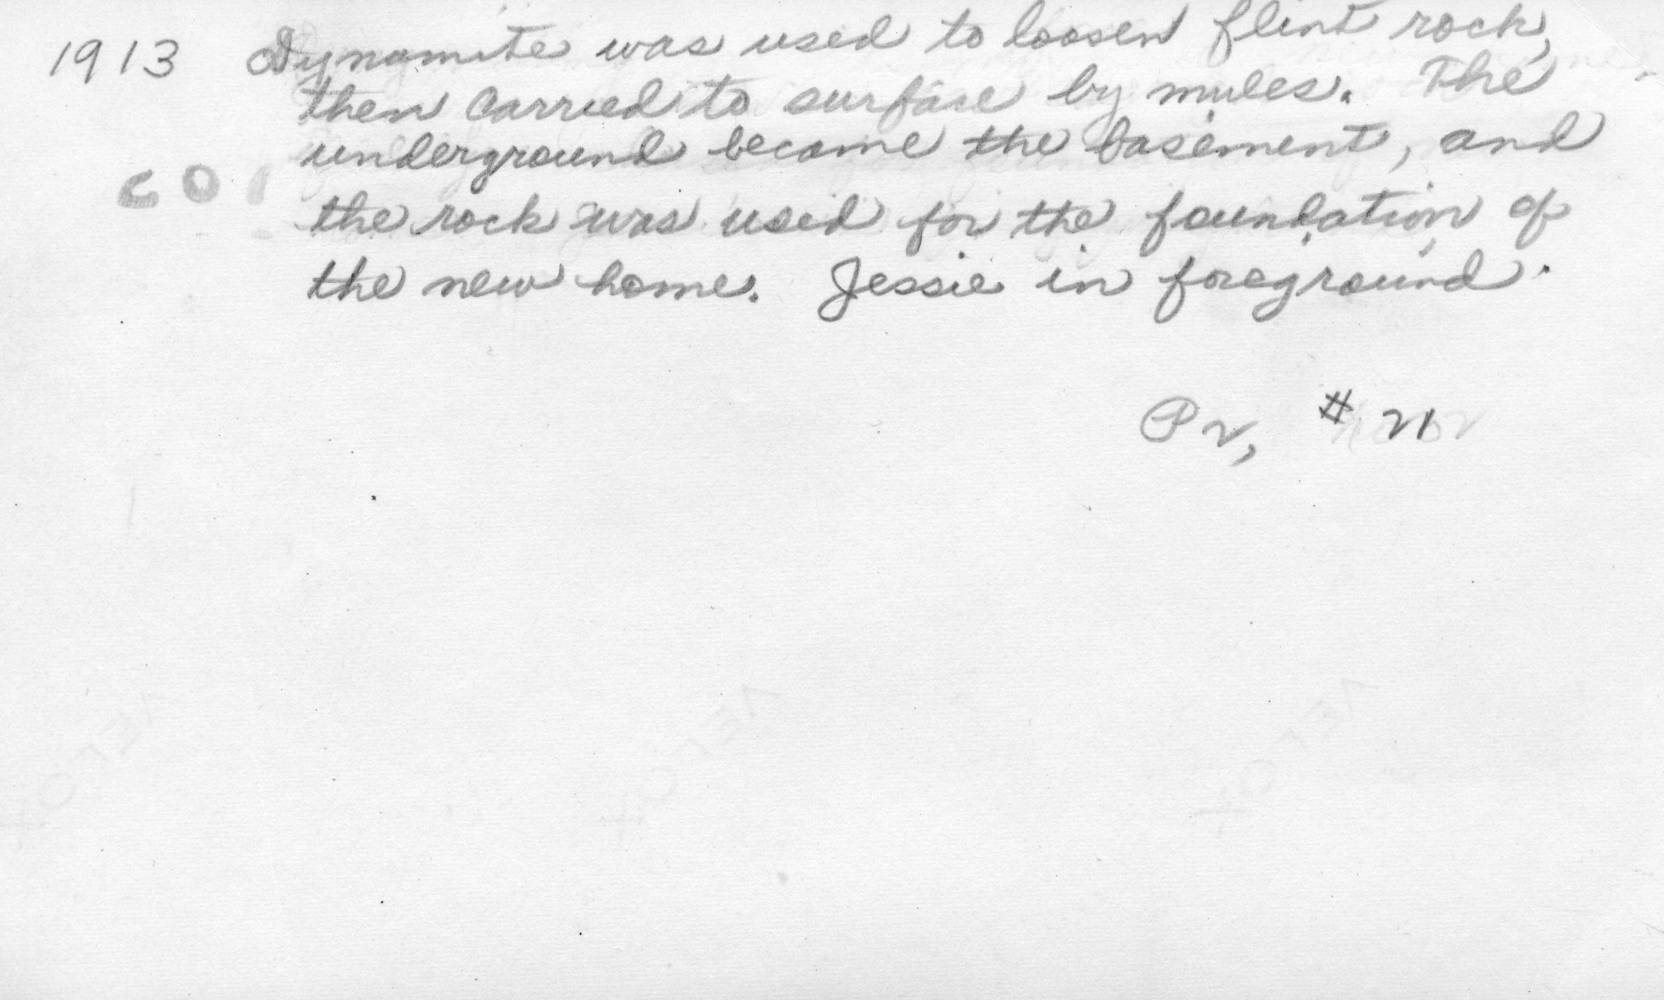 1913 Dynamite was used to loosen flint rock,
then carried to surface by mules. The
underground became the basement, and
the rock was used for the foundation of
the new home. Jessie in foreground.
P2, # 21